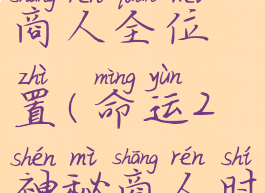 shāng rén quán wèi
商人全位
zhì mìng yùn
置(命运2
shén mì shāng rén shí
神秘商人时